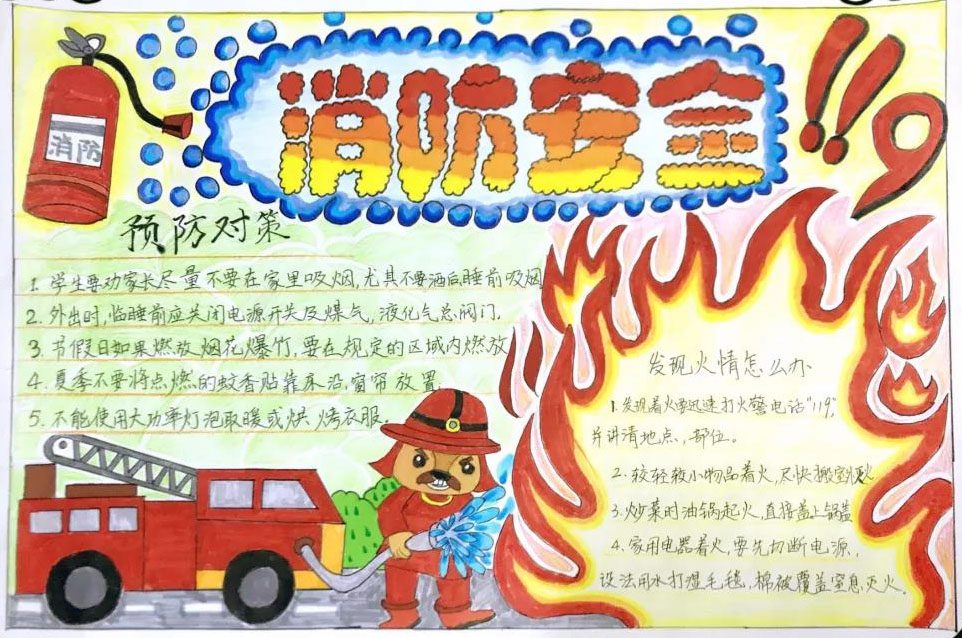 消防安全
119
消防
预防对策
1. 学生要劝家长尽量不要在家里吸烟,尤其不要酒后睡前吸烟
2. 外出时,临睡前应关闭电源开关及煤气,液化气总阀门.
3. 节假日如果燃放烟花爆竹,要在规定的区域内燃放
4. 夏季不要将点燃的蚊香贴靠床沿,窗帘放置.
5. 不能使用大功率灯泡取暖或烘烤衣服.
发现火情怎么办
1. 发现着火要迅速打火警电话"119",
并讲清地点,部位。
2. 较轻较小物品着火,尽快搬室外灭火
3. 炒菜时油锅起火,直接盖上锅盖
4. 家用电器着火,要先切断电源,
设法用水打湿毛毯,棉被覆盖窒息灭火.